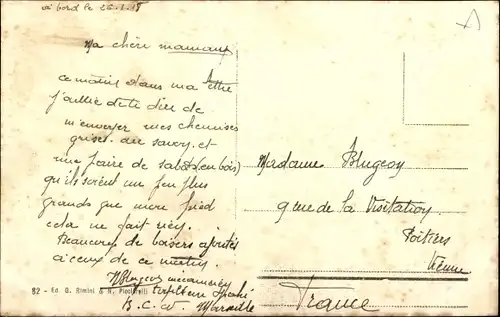 à bord le 26.1.18
Ma chère maman
ce matin dans ma lettre
j'ai oublié de te dire de
m'envoyer mes chemises
grises du savoy et
une paire de sabots (en bois)
qu'ils soient un peu plus
grands que mon pied
cela ne fait rien.
Beaucoup de baisers ajoutés
à ceux de ce matin
Blugeoy mécanicien
B.C.W. Marseille
Madame Blugeoy
9 rue de la Visitation
Poitiers
Vienne
France
82 - Ed. G. Rimini & N. Picciarelli